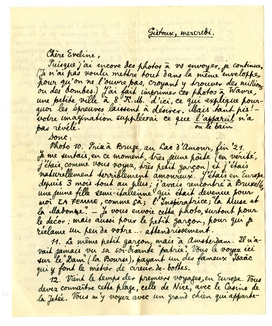 Giétoux, mercredi.
Chère Eveline,
Puisque j'ai encore des photos à vs envoyer, je continue,
(Je n'ai pas voulu mettre tout dans la même enveloppe,
pour qu'on ne l'ouvre pas, croyant y trouver des millions
ou des bombes) J'ai fait imprimer ces photos à Wavre,
une petite ville à 8 K.M. d'ici, ce qui explique pour-
quoi les épreuves laissent à désirer. Mais tant pis!
votre imagination suppléera ce que l'appareil n'a
pas révélé.
ou le bain
Donc:
Photo 10. Prise à Bruge, au Lac d'Amour, fin '21.
Je me sentais, en ce moment, très jeune poète, en vérité,
j'étais, comme vous voyez, très petit garçon, et j'étais
naturellement terriblement amoureux. J'étais en Europe
depuis 3 mois tout au plus; j'avais rencontré à Bruxelles
une jeune fille demi-italienne qui était devenue pour
moi LA FEMME, comme ça, l'Inspiratrice, la Muse et
la Madonne. — Je vous envoie cette photo, surtout pour
le décor; mais aussi pour ce petit garçon, pour que je
réclame un peu de votre... attendrissement.
11. Le même petit garçon, mais à Amsterdam. Il n'a-
vait jamais vu sa soi-disante patrie. Vous le voyez ici
sur le "Dam" (la Bourse), payant un des fameux
qui y font le métier de cireur de bottes.
12. Vient le temps des premiers voyages, en Europe. Vous
devez connaître cette plage, celle de Nice, avec le Casino de
la Jetée. Vous m'y voyez avec un grand chien que apparte-